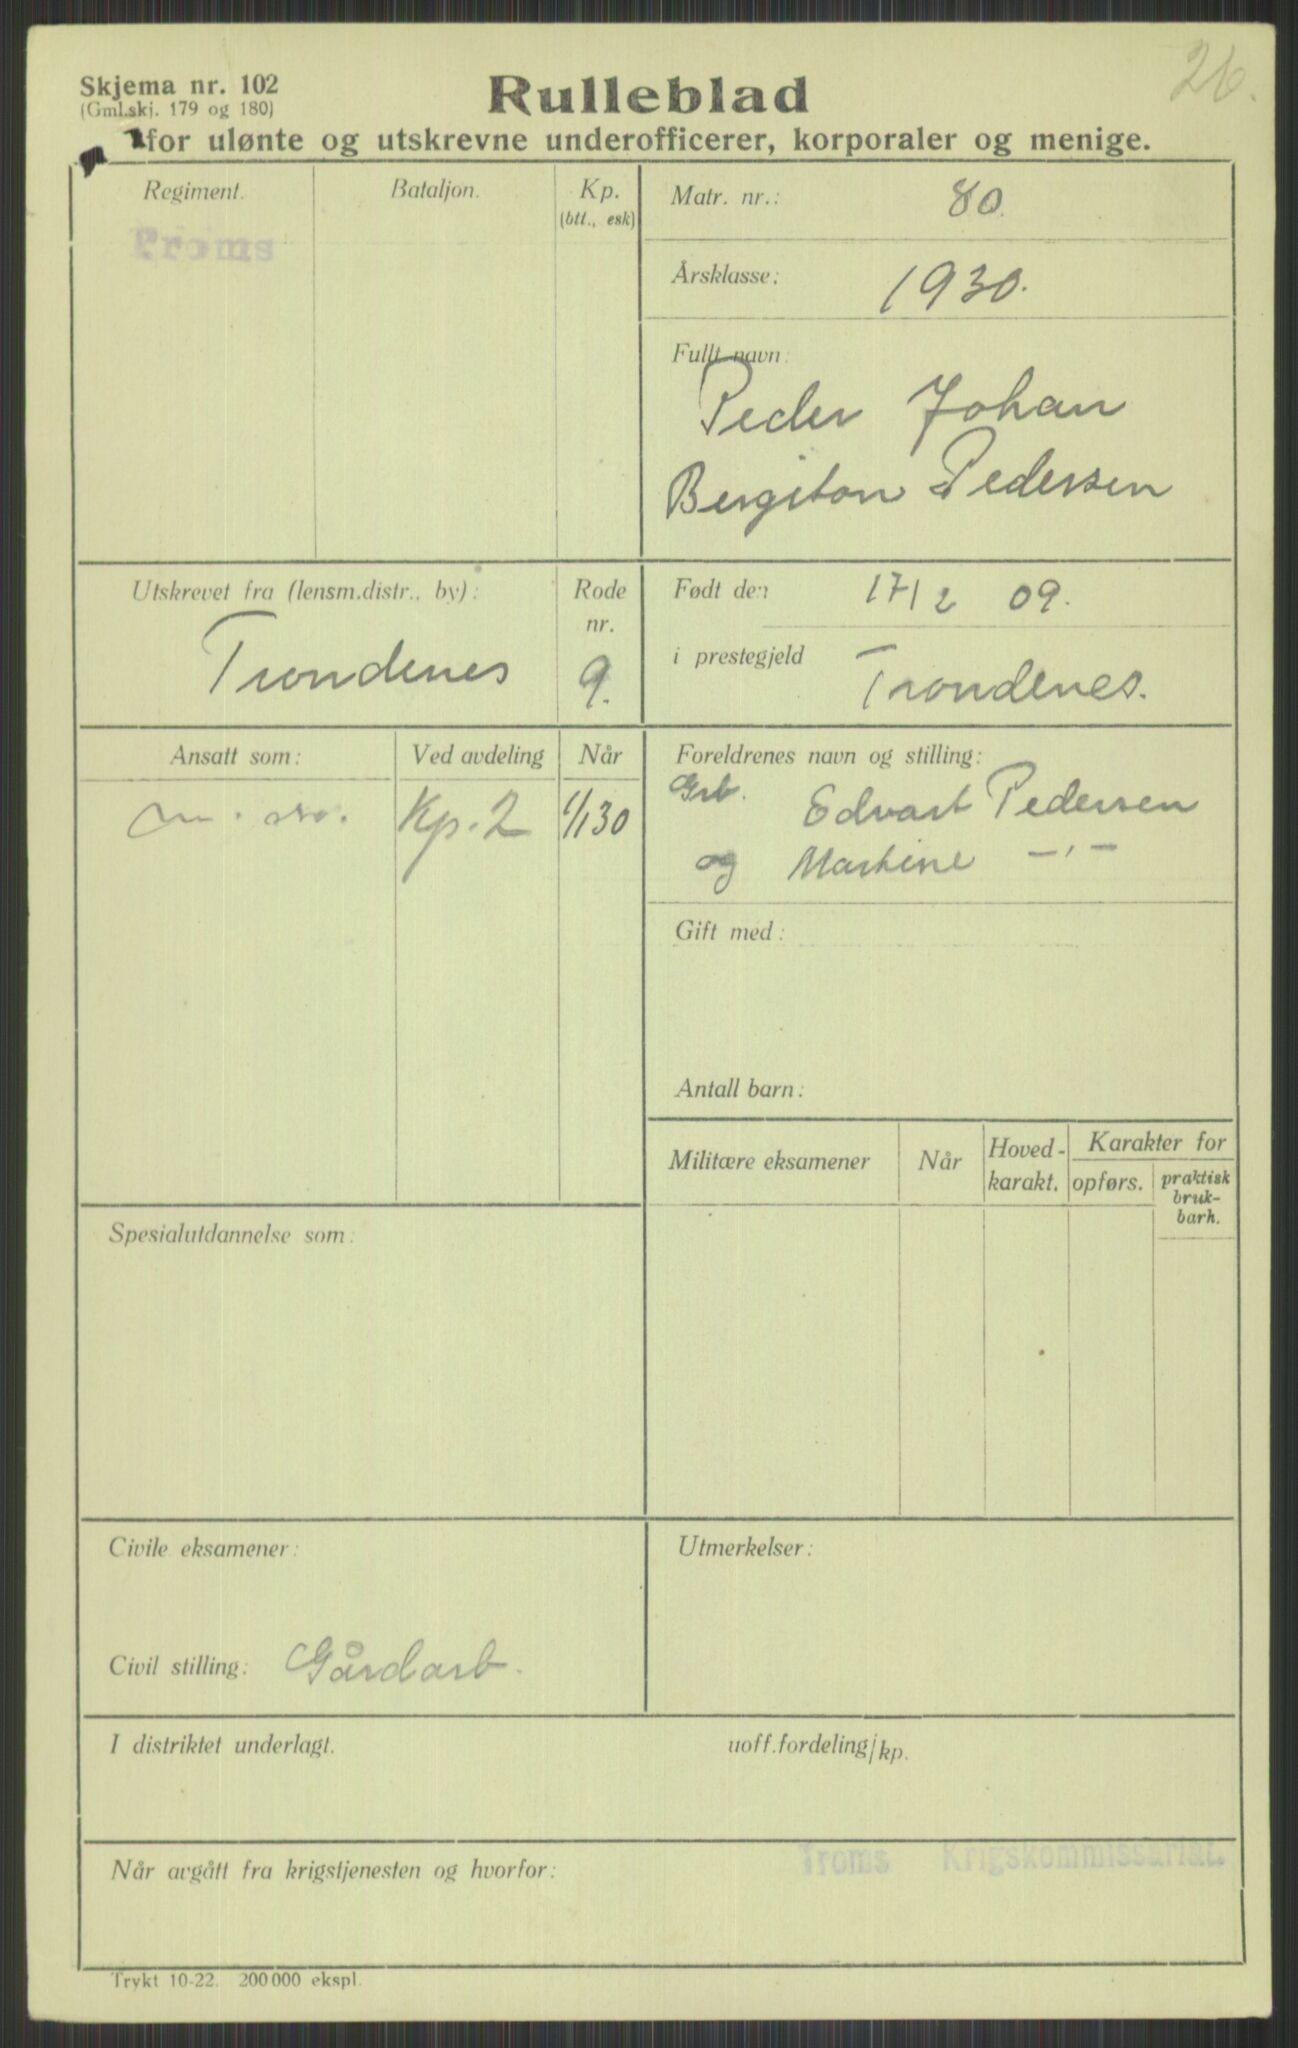 26.
Skjema nr. 102
(Gml.skj. 179 og 180)
Rulleblad
for ulønte og utskrevne underofficerer, korporaler og menige.
Regiment.
Troms
Bataljon.
Kp.
(btt., esk)
Matr. nr.: 80.
Årsklasse: 1930.
Fullt navn:
Peder Johan
Bergiton Pedersen
Utskrevet fra (lensm.distr., by):
Trondenes
Rode
nr.
9.
Født den 17/2 09.
i prestegjeld Trondenes.
Ansatt som:
Ved avdeling
Kp. 2
Når
1/1 30
Foreldrenes navn og stilling:
Grb. Edvart Pedersen
og Martine —„—
Gift med:
Antall barn:
Militære eksamener
Når
Hoved-
karakt.
Karakter for
opførs.
praktisk
bruk-
barh.
Spesialutdannelse som:
Civile eksamener:
Civil stilling: Gårdarb.
Utmerkelser:
I distriktet underlagt.
uoff.fordeling/kp.
Når avgått fra krigstjenesten og hvorfor:
Troms Krigskommissariat.
Trykt 10-22. 200 000 ekspl.